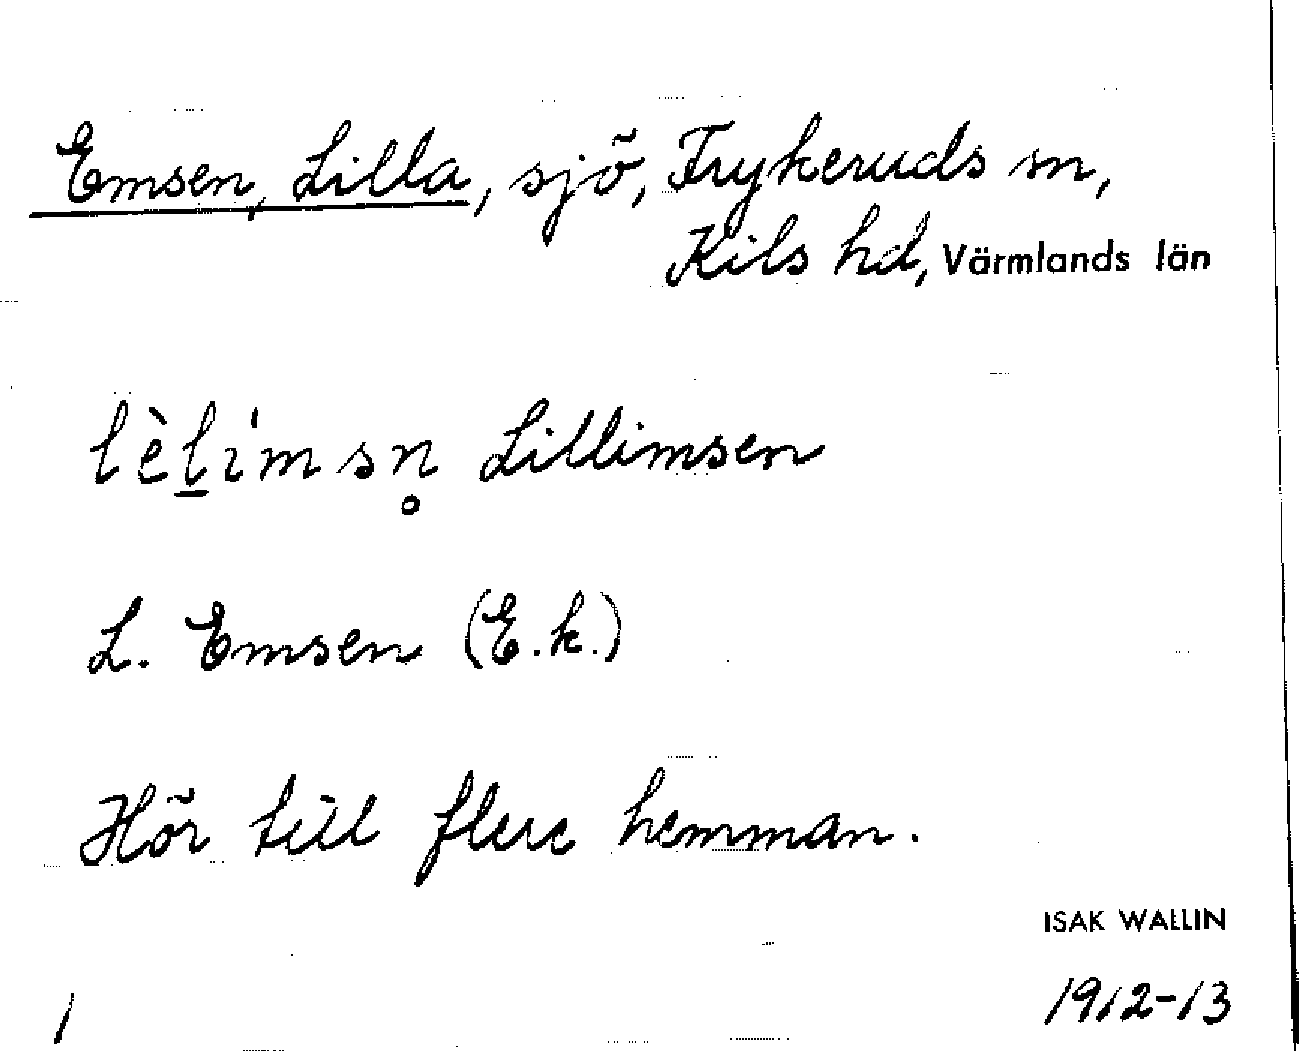 Emsen, Lilla, sjö, Frykeruds sn,
Kils hd, Värmlands län
lèḻi'msn̥ Lillimsen
L. Emsen (E.k.)
Hör till flere hemman.
ISAK WALLIN
1 1912-13